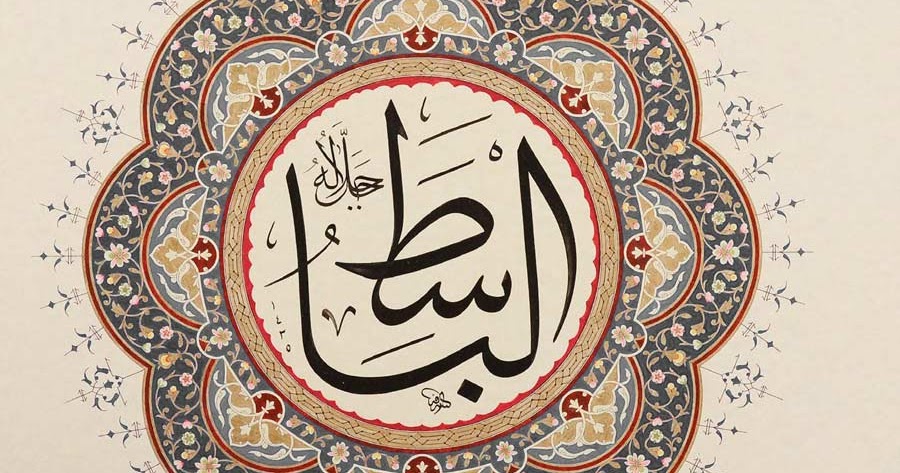 الباسط
جل جلاله
١٤٢٥